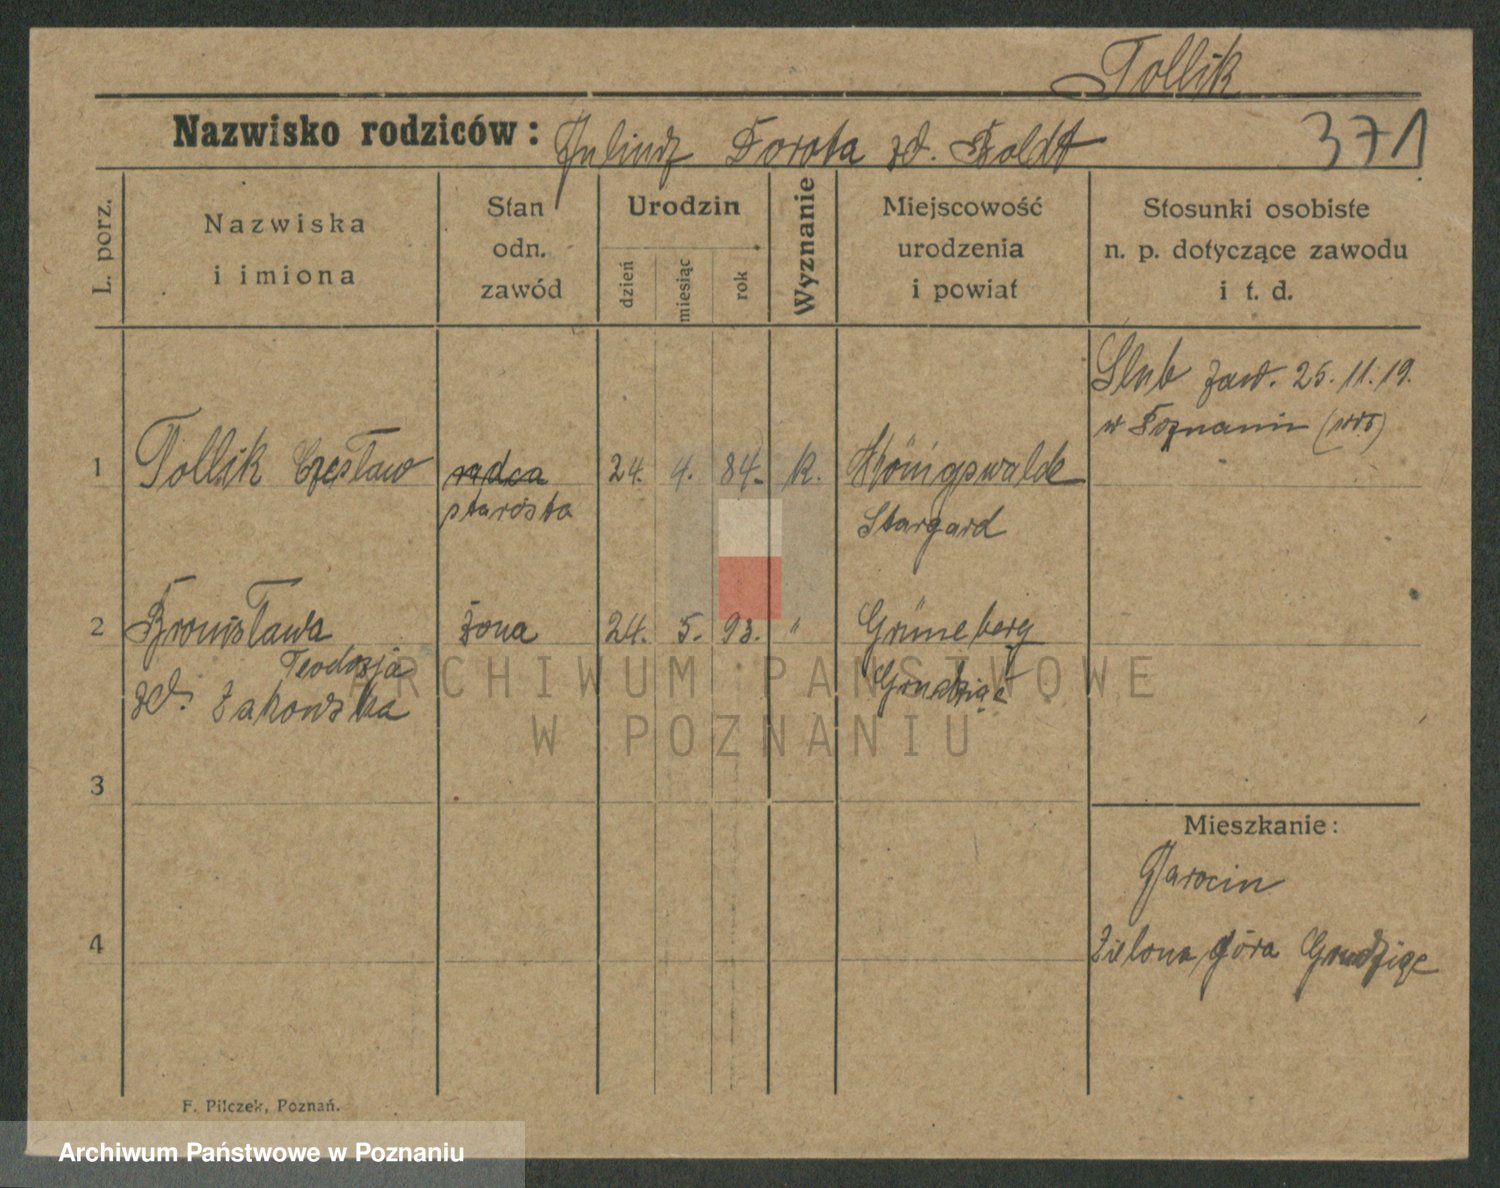 Tollik
Nazwisko rodziców: Juljusz Dorota zd. Boldt
371
L. porz.
Nazwiska
i imiona
Stan
odn.
zawód
Urodzin
dzień
miesiąc
rok
Wyznanie
Miejscowość
urodzenia
i powiat
Stosunki osobiste
n. p. dotyczące zawodu
i t. d.
Ślub zaw. 25.11.19.
w Poznaniu
1 Tollik Czesław radca 24. 4. 84. k. Königswalde
starosta Stargard
2 Bronisława żona 24. 5. 93. " Grüneberg
Teodozja
zd. Żakowska Grudziąc
3
4
Mieszkanie:
Jarocin
Zielona góra Grudziąc
F. Pilczek, Poznań.
ARCHIWUM PAŃSTWOWE
W POZNANIU
Archiwum Państwowe w Poznaniu